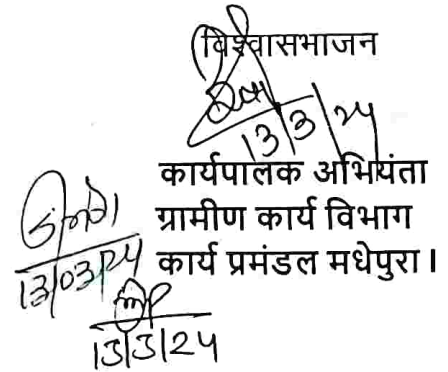 विश्वासभाजन
13/3/24
कार्यपालक अभियंता
ग्रामीण कार्य विभाग
कार्य प्रमंडल मधेपुरा।
13/03/24
13/3/24